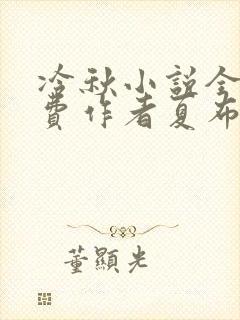 冷秋小説全
費作者夏布
董顯光